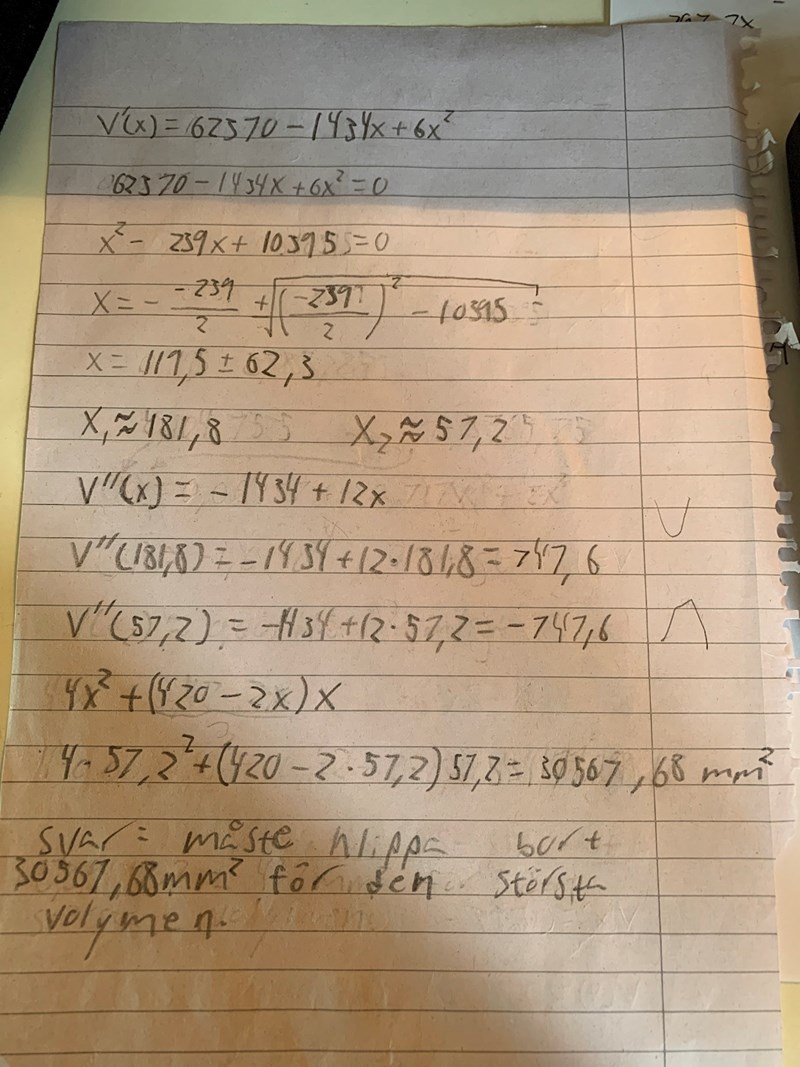 V'(x) = 62370 - 1434x + 6x²
62370 - 1434x + 6x² = 0
x² - 239x + 10395 = 0
x = - -239/2 ± √((-239/2)² - 10395)
x = 119,5 ± 62,3
x₁ ≈ 181,8 x₂ ≈ 57,2
V''(x) = - 1434 + 12x
V''(181,8) = -1434 + 12·181,8 = 747,6
V''(57,2) = -1434 + 12·57,2 = -747,6
4x² + (420 - 2x)x
4·57,2² + (420 - 2·57,2)57,2 = 30567,68 mm²
svar = måste klippa bort
30567,68mm² för den största
volymen.